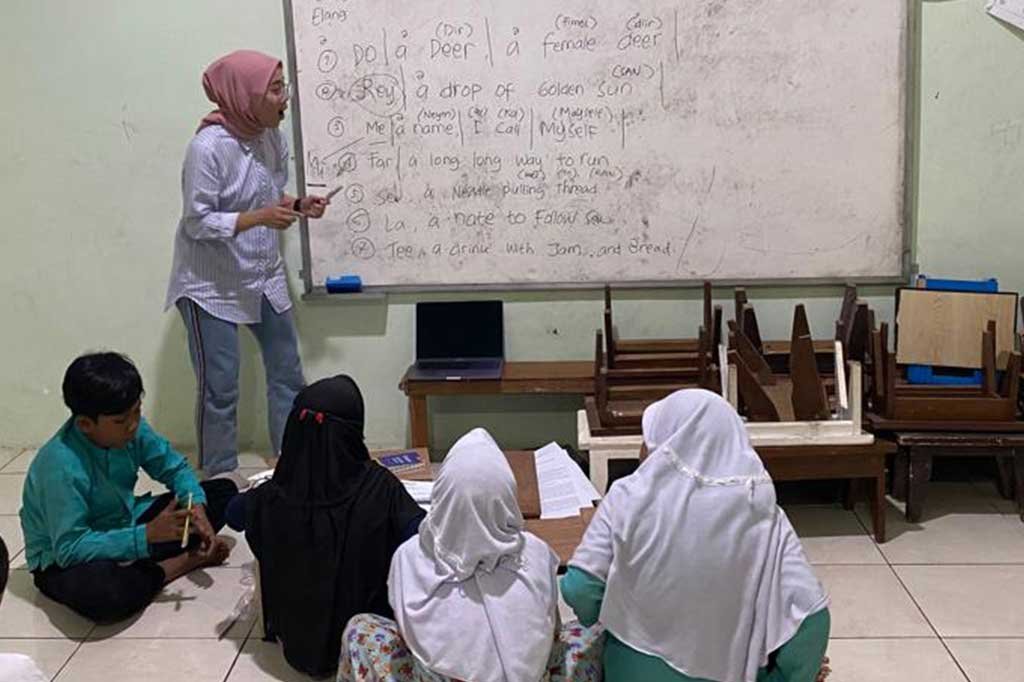 Elang
(Dir) (fimel) (diir)
① DO | a Deer, | a female deer |
② Rey | a drop of Golden Sun (SAN)
(Neym) (Kol) (Mayself)
③ Me | a name, | I call | Myself |
④ Far | a long long way to run
⑤ Sew, a Needle pulling thread
⑥ La, a note to Follow Sew
⑦ Tee, a drink with Jam, and Bread.